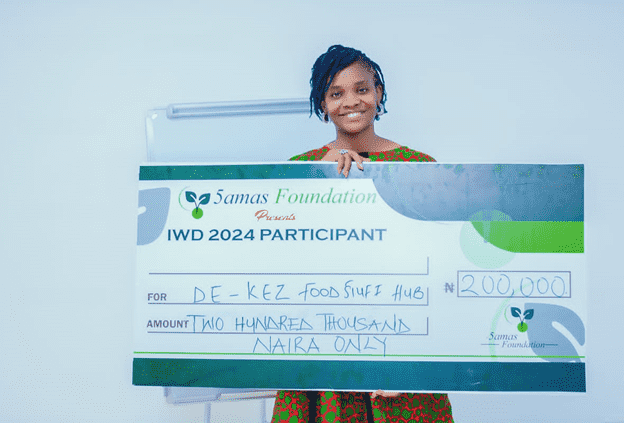 5amas Foundation
Presents
IWD 2024 PARTICIPANT
FOR DE-KEZ FOODSTUFF HUB
₦ 200,000
AMOUNT TWO HUNDRED THOUSAND
NAIRA ONLY
5amas
Foundation